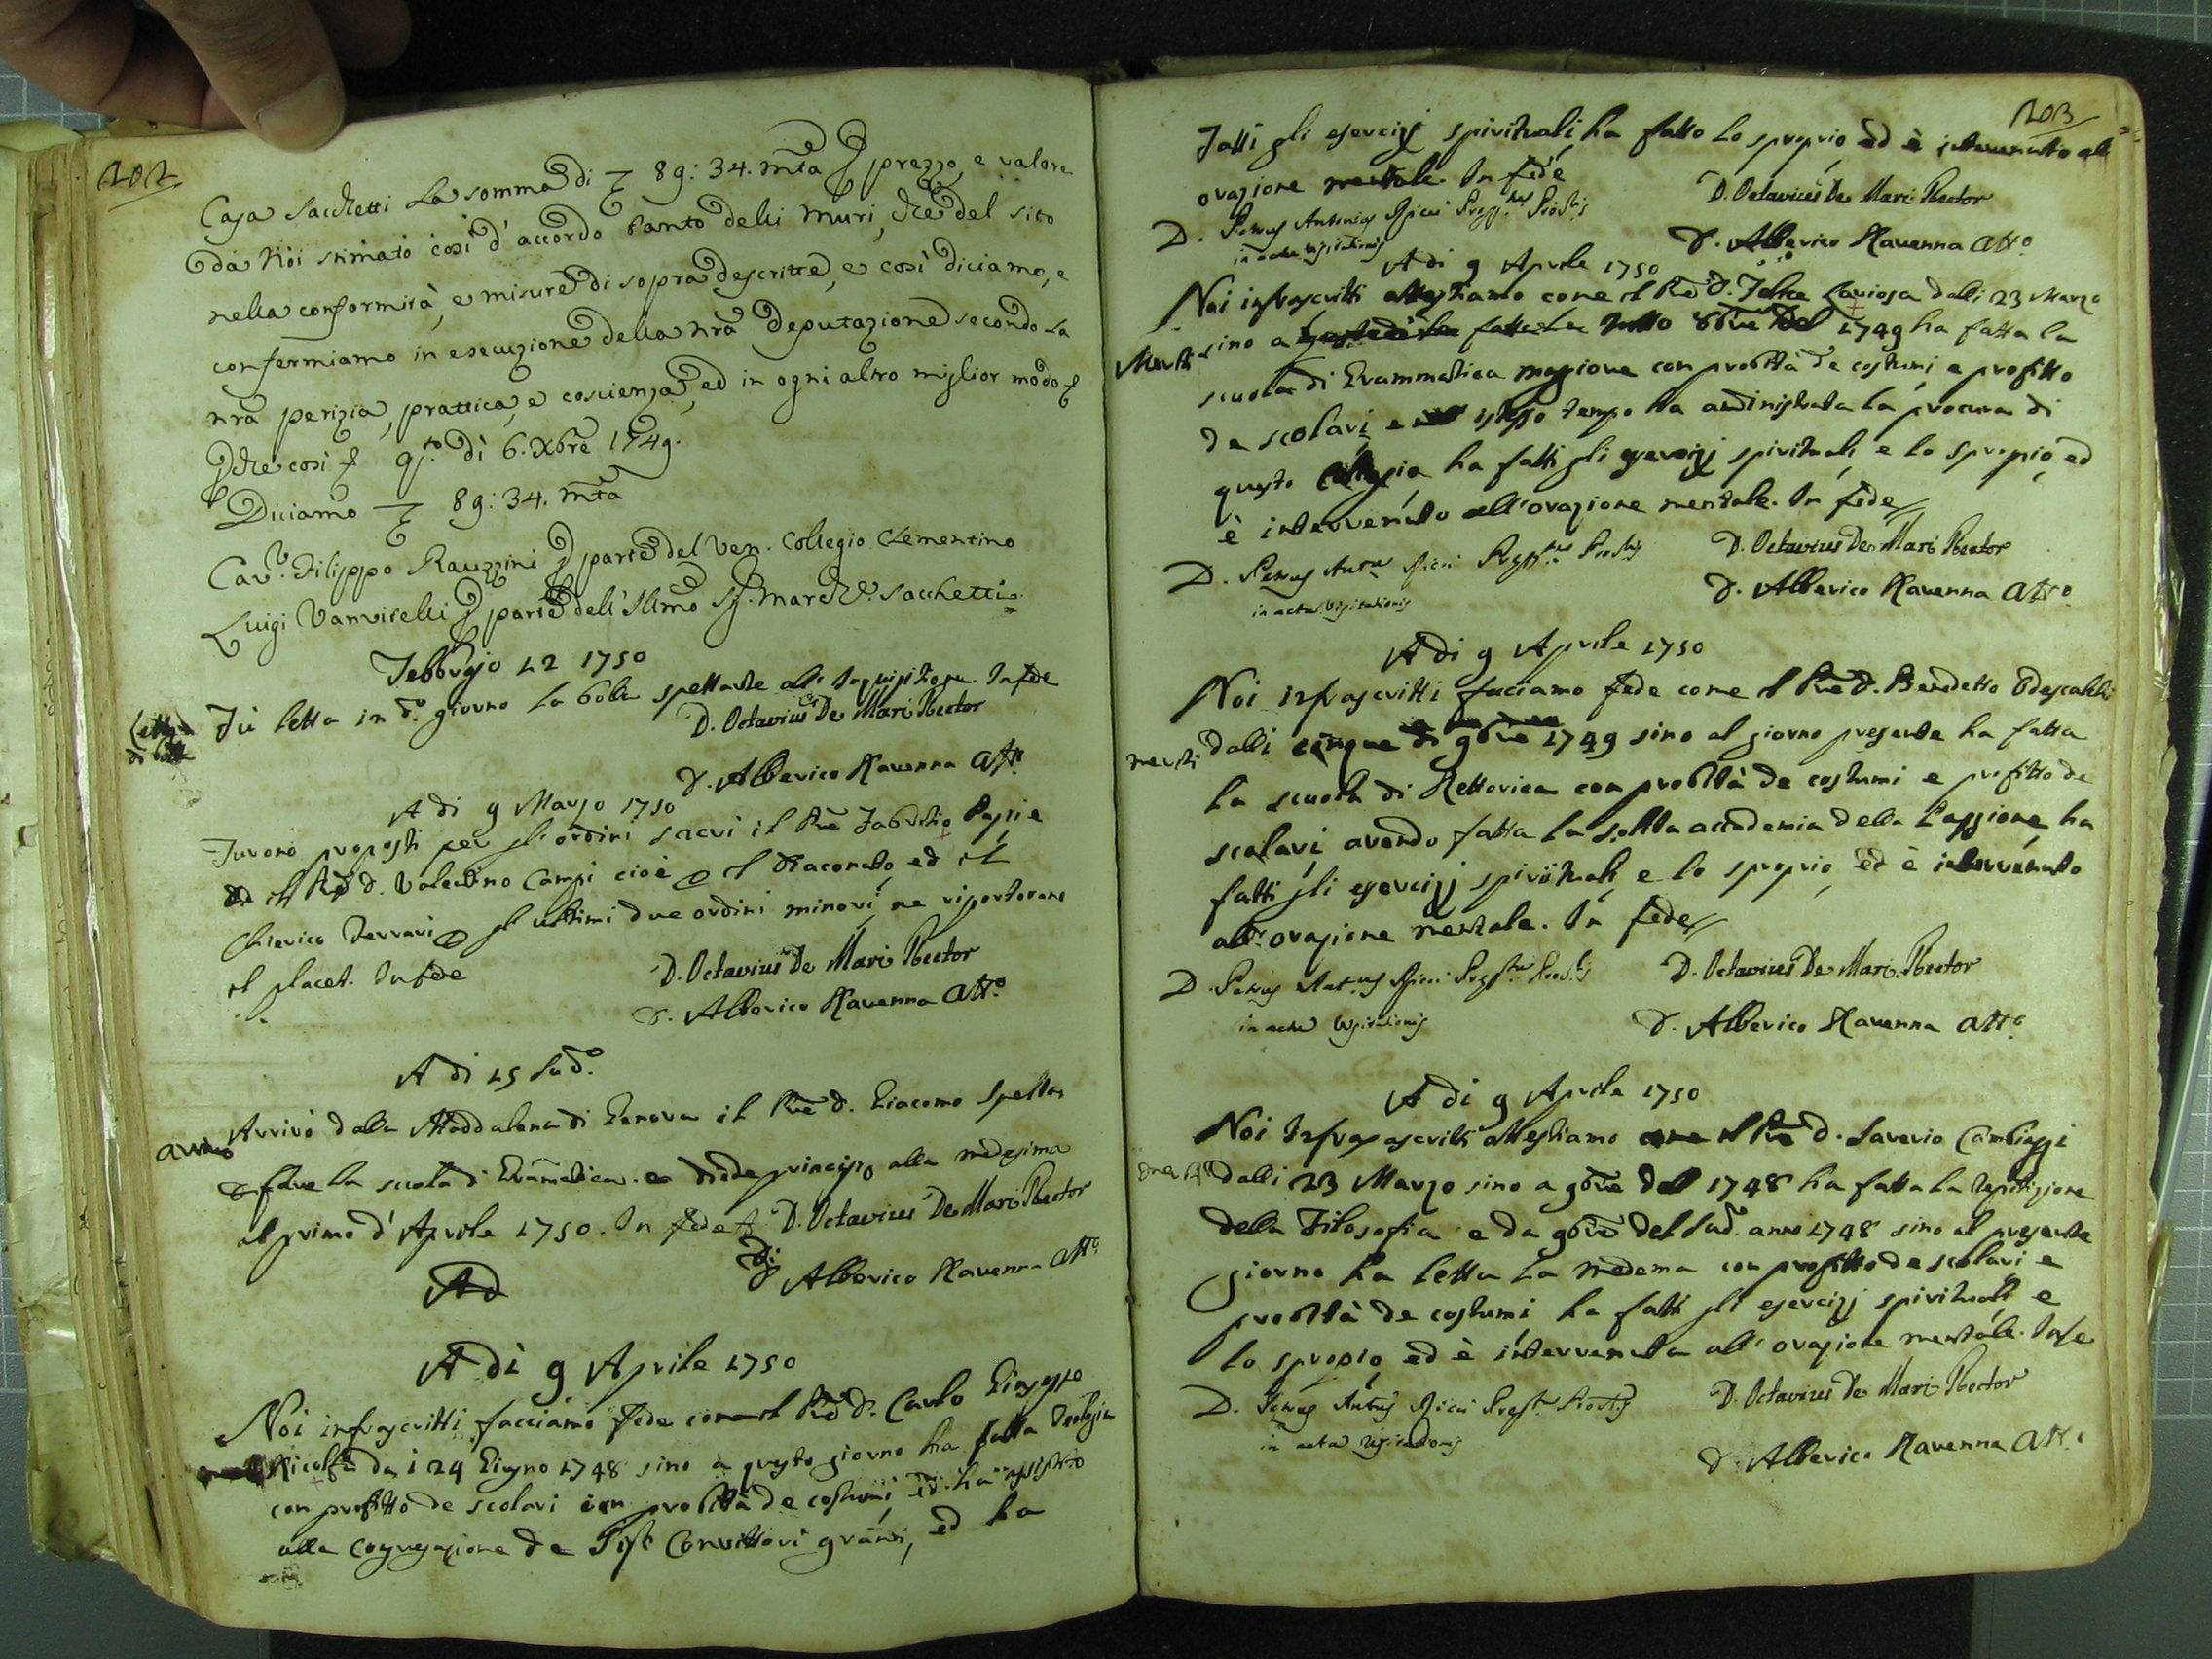 202
Casa Sacchetti la somma di 89: 34. mta prezzo, e valore
da Noi stimato così d'accordo tanto delli Muri, che del sito
nella conformità, e misure di sopra descritte, e così diciamo, e
confermiamo in esecuzione della nrã Deputazione secondo la
nrã perizia, prattica, e coscienza, ed in ogni altro miglior modo
che così qto dì 6. Xbre 1749.
Diciamo 89: 34. mta
Cav.r Filippo Rauzzini parte del Ven. Collegio Clementino
Luigi Vanvitelli parte dell'Illmo Sig. March.e Sacchetti
Febbrajo 22 1750
Letta di bolle
Fù letta in d.o giorno la bolla spettante all' Inquisizione. In fede
D. Octavius De Mari Rector
D. Alberico Ravenna Att.o
A di 9 Marzo 1750
Furono proposti per gl'ordini sacri il Rñe Fabritio
ed il D. Valentino Campi cioè il Diaconato, ed il
Chierico Ferrari gl'ultimi due ordini minori, ne riportorono
il placet. In fede
D. Octavius De Mari Rector
D. Alberico Ravenna Att.o
A di 25 Sud.o
Arrivo
Arrivò dalla Maddalena di Genova il Pre D. Giacomo
fare la scuola di Gramatica. e diede principio alla medesima
al primo d'Aprile 1750. In fede D. Octavius De Mari Rector
D. Alberico Ravenna Att.o
Ad
A dì 9 Aprile 1750
Noi infrascritti facciamo fede come il D. Carlo Giuseppe
da i 24 Giugno 1748 sino a questo giorno ha fatta Teologia
con profitto de scolari con probità de costumi, ed ha assistito
alla Congregazione de Convittori grandi, ed ha
203
Fatti gli esercizj spirituali, ha fatto lo sproprio, ed è intervenuto all'
orazione mentale. In fede
D. Octavius De Mari Rector
D. Petrus Antonius Ricci
in actu visitationis
D. Alberico Ravenna Att.o
A di 9 Aprile 1750
Noi infrascritti attestiamo come il D. Felice Laviosa dalli 23 Marzo
Meriti
sino a tutto 8bre del 1749 ha fatta la
scuola di Grammatica maggiore con probità de costumi, e profitto
de scolari, e istesso tempo ha administrata la procura di
questo Collegio ha fatti gli esercizj spirituali, e lo sproprio, ed
è intervenuto all'orazione mentale. In fede
D. Octavius De Mari Rector
D. Petrus Ant.us Ricci
in actu Visitationis
D. Alberico Ravenna Att.o
A di 9 Aprile 1750
Noi infrascritti facciamo fede come il Pre D. Benedetto Odescalchi
meriti
dalli cinque di 9bre 1749 sino al giorno presente ha fatta
la scuola di Rettorica con probità de costumi e profitto de
scolari, avendo fatta la solita accademia della Passione, ha
fatti gli esercizj spirituali, e lo sproprio, ed è intervenuto
all'orazione mentale. In fede
D. Octavius De Mari Rector
D. Petrus Ant.us Ricci
in actu Visitationis
D. Alberico Ravenna Att.o
A di 9 Aprile 1750
Noi attestiamo come il Pre D. Saverio Cambiaggi
meriti
dalli 23 Marzo sino a 9bre del 1748 ha fatta la repetizione
della Filosofia e da 9bre del Sud.o anno 1748 sino al presente
giorno ha letta la medema con profitto de scolari e
probità de costumi, ha fatti gli esercizj spirituali e
lo sproprio, ed è intervenuta all'orazione mentale. In fe
D. Octavius De Mari Rector
D. Petrus Ant.us Ricci
in actu Visitationis
D. Alberico Ravenna Att.o